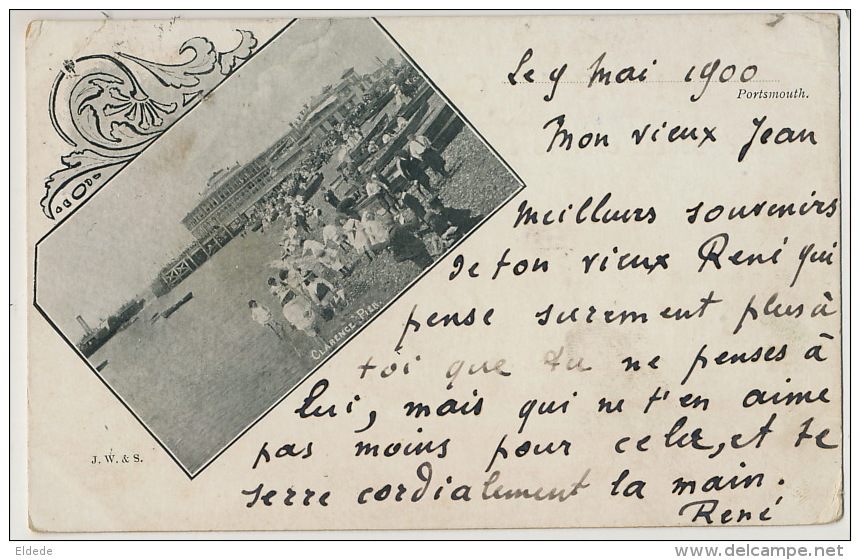 Le 9 Mai 1900
Portsmouth.
Mon vieux Jean
Meilleurs souvenirs
de ton vieux René qui
pense surement plus à
toi que tu ne penses à
lui, mais qui ne t'en aime
pas moins pour cela, et te
serre cordialement la main.
René
CLARENCE PIER.
J. W. & S.
Eldede
http://www.delcampe.net